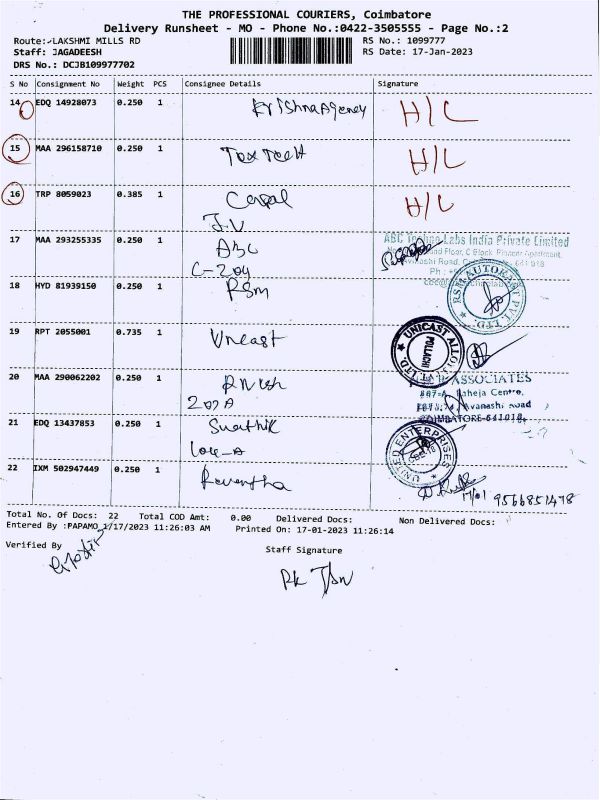 THE PROFESSIONAL COURIERS, Coimbatore
Delivery Runsheet - MO - Phone No.:0422-3505555 - Page No.:2
Route:-LAKSHMI MILLS RD RS No.: 1099777
Staff: JAGADEESH RS Date: 17-Jan-2023
DRS No.: DCJB109977702
S No Consignment No Weight PCS Consignee Details Signature
14 EDQ 14928073 0.250 1 Krishna Agency H/L
15 MAA 296158710 0.250 1 H/L
16 TRP 8059023 0.385 1 H/L
J.V
17 MAA 293255335 0.250 1 ABC ABC Techno Labs India Private Limited
C-204
18 HYD 81939150 0.250 1 RSM RSM AUTOKAST PVT LTD
19 RPT 2055001 0.735 1 UNICAST ALLOYS PVT LTD. POLLACHI
20 MAA 290062202 0.250 1 ASSOCIATES
207 A Raheja Centre,
Avanashi Road
COIMBATORE-641018.
21 EDQ 13437853 0.250 1 Swathik UNITED ENTERPRISES
22 IXM 502947449 0.250 1 17/01 9566851478
Total No. Of Docs: 22 Total COD Amt: 0.00 Delivered Docs: Non Delivered Docs:
Entered By :PAPAMO 1/17/2023 11:26:03 AM Printed On: 17-01-2023 11:26:14
Verified By Staff Signature